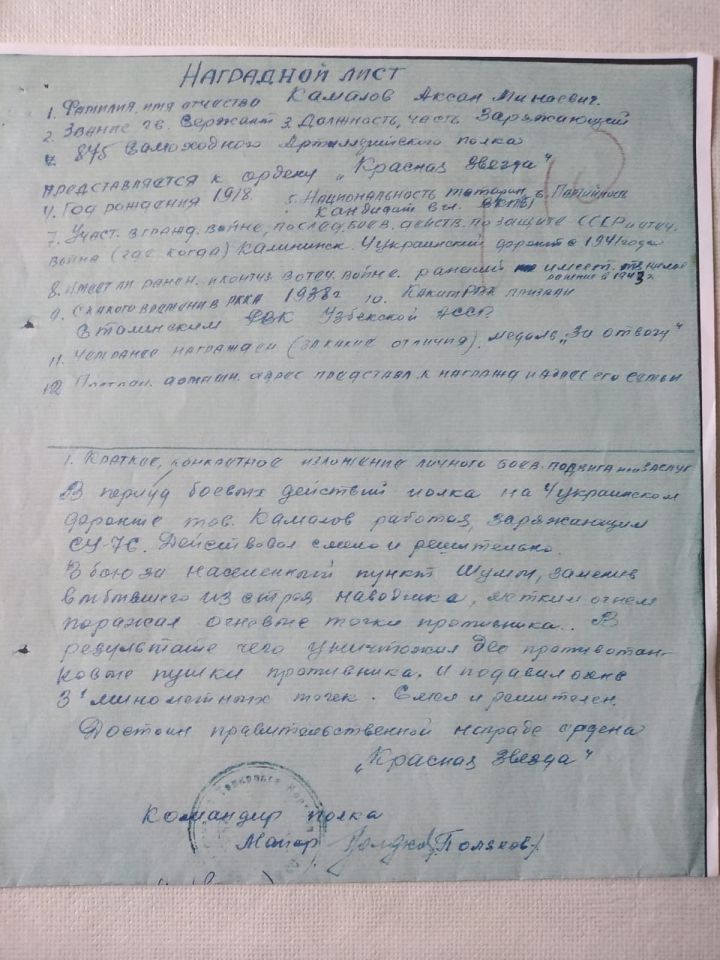 НАГРАДНОЙ ЛИСТ
1. Фамилия, имя отчество Камалов Аксан Минаевич.
2. Звание гв. Сержант 3. Должность, часть Заряжающий
875 Самоходного Артиллерийского полка
представляется к ордену „Красная звезда"
4. Год рождения 1918. 5. Национальность татарин 6. Партийность
кандидат в чл. ВКП(б)
7. Участ. в гражд. войне, послед. боев. действ. по защите СССР и отеч.
война (где когда) Калининск. 4 украинский фронт с 1941 года
8. Имеет ли ранен. и контуз. в отеч. войне. ранений имеет. тяжелое
ранение в 1943 г.
9. С какого времени в РККА 1938 г 10. Каким РВК призван
Сталинским РВК Узбекской ССР.
11. Чем ранее награжден (за какие отличия). Медаль „За отвагу"
12 Постоян. домашн. адрес представл. к награжд и адрес его семьи
1. Краткое, конкретное изложение личного боев. подвига или заслуг
В период боевых действий полка на 4 украинском
фронте тов. Камалов работая, заряжающим
СУ-76. Действовал смело и решительно.
В бою за населенный пункт Шумы, заменив
выбывшего из строя наводчика, метким огнем
поражал огневые точки противника.. В
результате чего уничтожил две противотан-
ковые пушки противника. и подавил огнь
3 минометных точек. Смел и решителен.
Достоин правительственной награде ордена
„Красная Звезда"
Командир полка
Майор /Поляков/